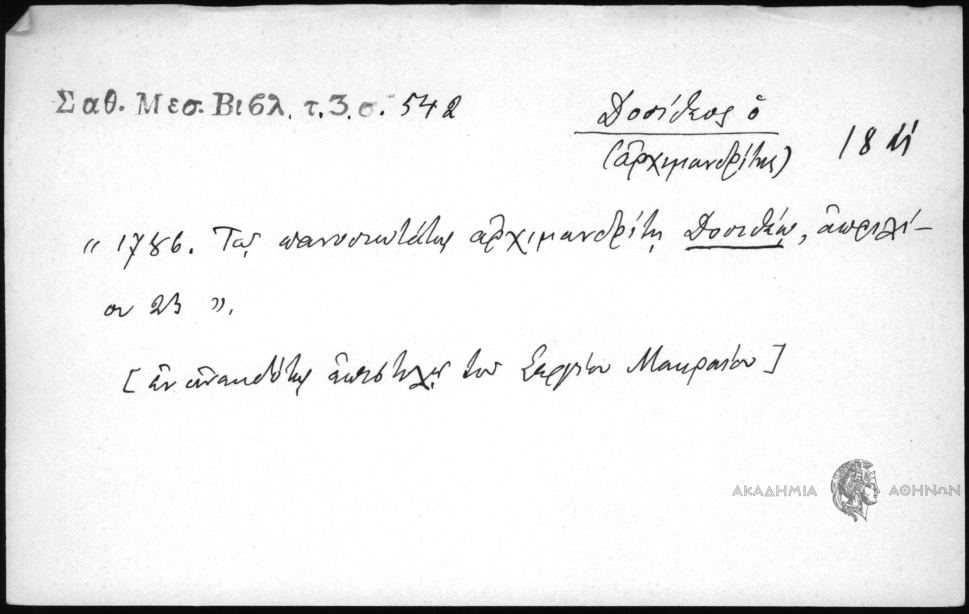 Σαθ. Μεσ. Βιβλ. τ. 3. σ. 542
Δοσίθεος ὁ
(ἀρχιμανδρίτης)
18
" 1786. Τῷ πανοσιωτάτῳ ἀρχιμανδρίτῃ Δοσιθέῳ, ἀπριλί-
ου 23 ".
[ἐν ἀνεκδότῳ ἐπιστολῇ τοῦ Σεργίου Μακραίου]
ΑΚΑΔΗΜΙΑ ΑΘΗΝΩΝ